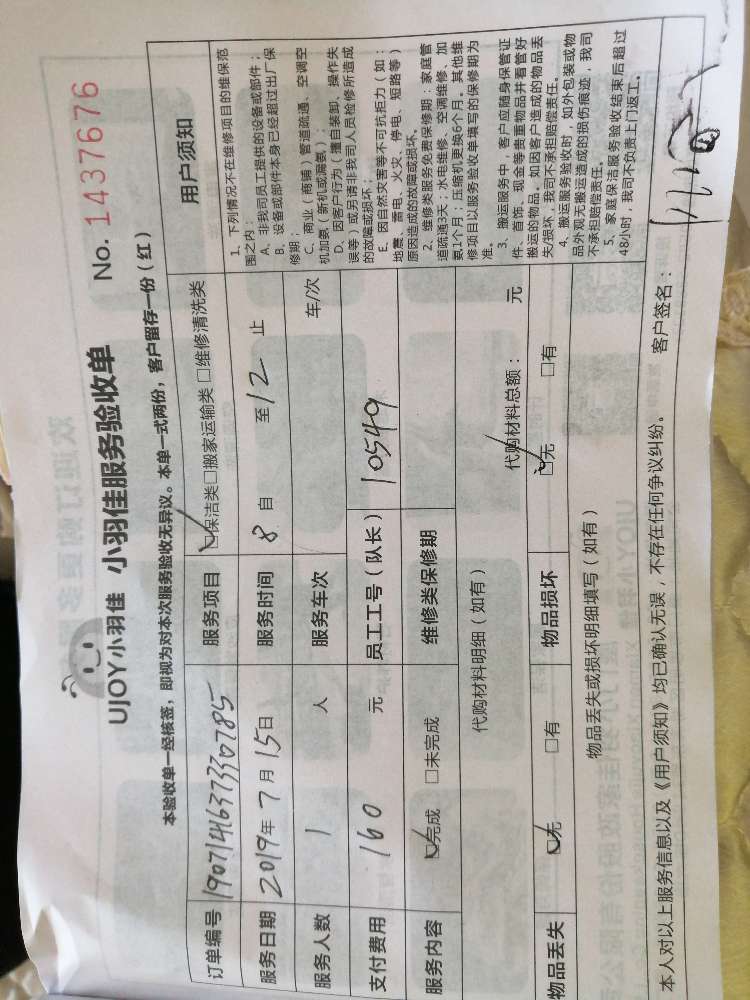 UJOY小羽佳 小羽佳服务验收单 No. 1437676
本验收单一经核签，即视为对本次服务验收无异议。本单一式两份，客户留存一份（红）
订单编号 190714637330785 服务项目 ☑保洁类□搬家运输类□维修清洗类
服务日期 2019年7月15日 服务时间 8 自 至12 止
服务人数 1 人 服务车次 车/次
支付费用 160 元 员工工号（队长） 10549
服务内容 ☑完成 □未完成 维修类保修期
代购材料明细（如有） 代购材料总额： 元
物品丢失 ☑无 □有 物品损坏 ☑无 □有
物品丢失或损坏明细填写（如有）
用户须知
1、下列情况不在维修项目的维保范
围之内：
A、非我司员工提供的设备或部件；
B、设备或部件本身已经超过出厂保
修期；
C、商业（商铺）管道疏通、空调空
机加氨（新机或漏氨）；
D、因客户行为（擅自装卸、操作失
误等）或另请非我司人员检修所造成
的故障或损坏；
E、因自然灾害等不可抗拒力（如：
地震、蓄电、火灾、停电、短路等）
原因造成的故障或损坏。
2、维修类服务免费保修期：家庭管
道疏通3天；水电维修、空调维修、加
氨1个月；压缩机更换6个月。其他维
修项目以服务验收单填写的保修期为
准。
3、搬运服务中，客户应随身保管证
件、首饰、现金等贵重物品并看管好
搬运的物品。如因客户造成的物品丢
失/损坏，我司不承担赔偿责任。
4、搬运服务验收时，如外包装或物
品外观无搬运造成的损伤痕迹，我司
不承担赔偿责任。
5、家庭保洁服务验收结束后超过
48小时，我司不负责上门返工。
本人对以上服务信息以及《用户须知》均已确认无误，不存在任何争议纠纷。 客户签名：